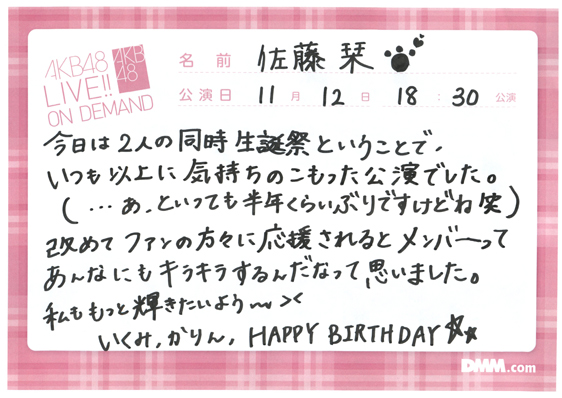 AKB48
LIVE!!
ON DEMAND
AKB
48
名前 佐藤栞
公演日 11月12日 18:30公演
今日は2人の同時生誕祭ということで、
いつも以上に気持ちのこもった公演でした。
(…あ、といっても半年くらいぶりですけどね笑)
改めてファンの方々に応援されるとメンバーって
あんなにもキラキラするんだなって思いました。
私ももっと輝きたいよう〜><
いくみ、かりん、HAPPY BIRTHDAY☆☆
DMM.com